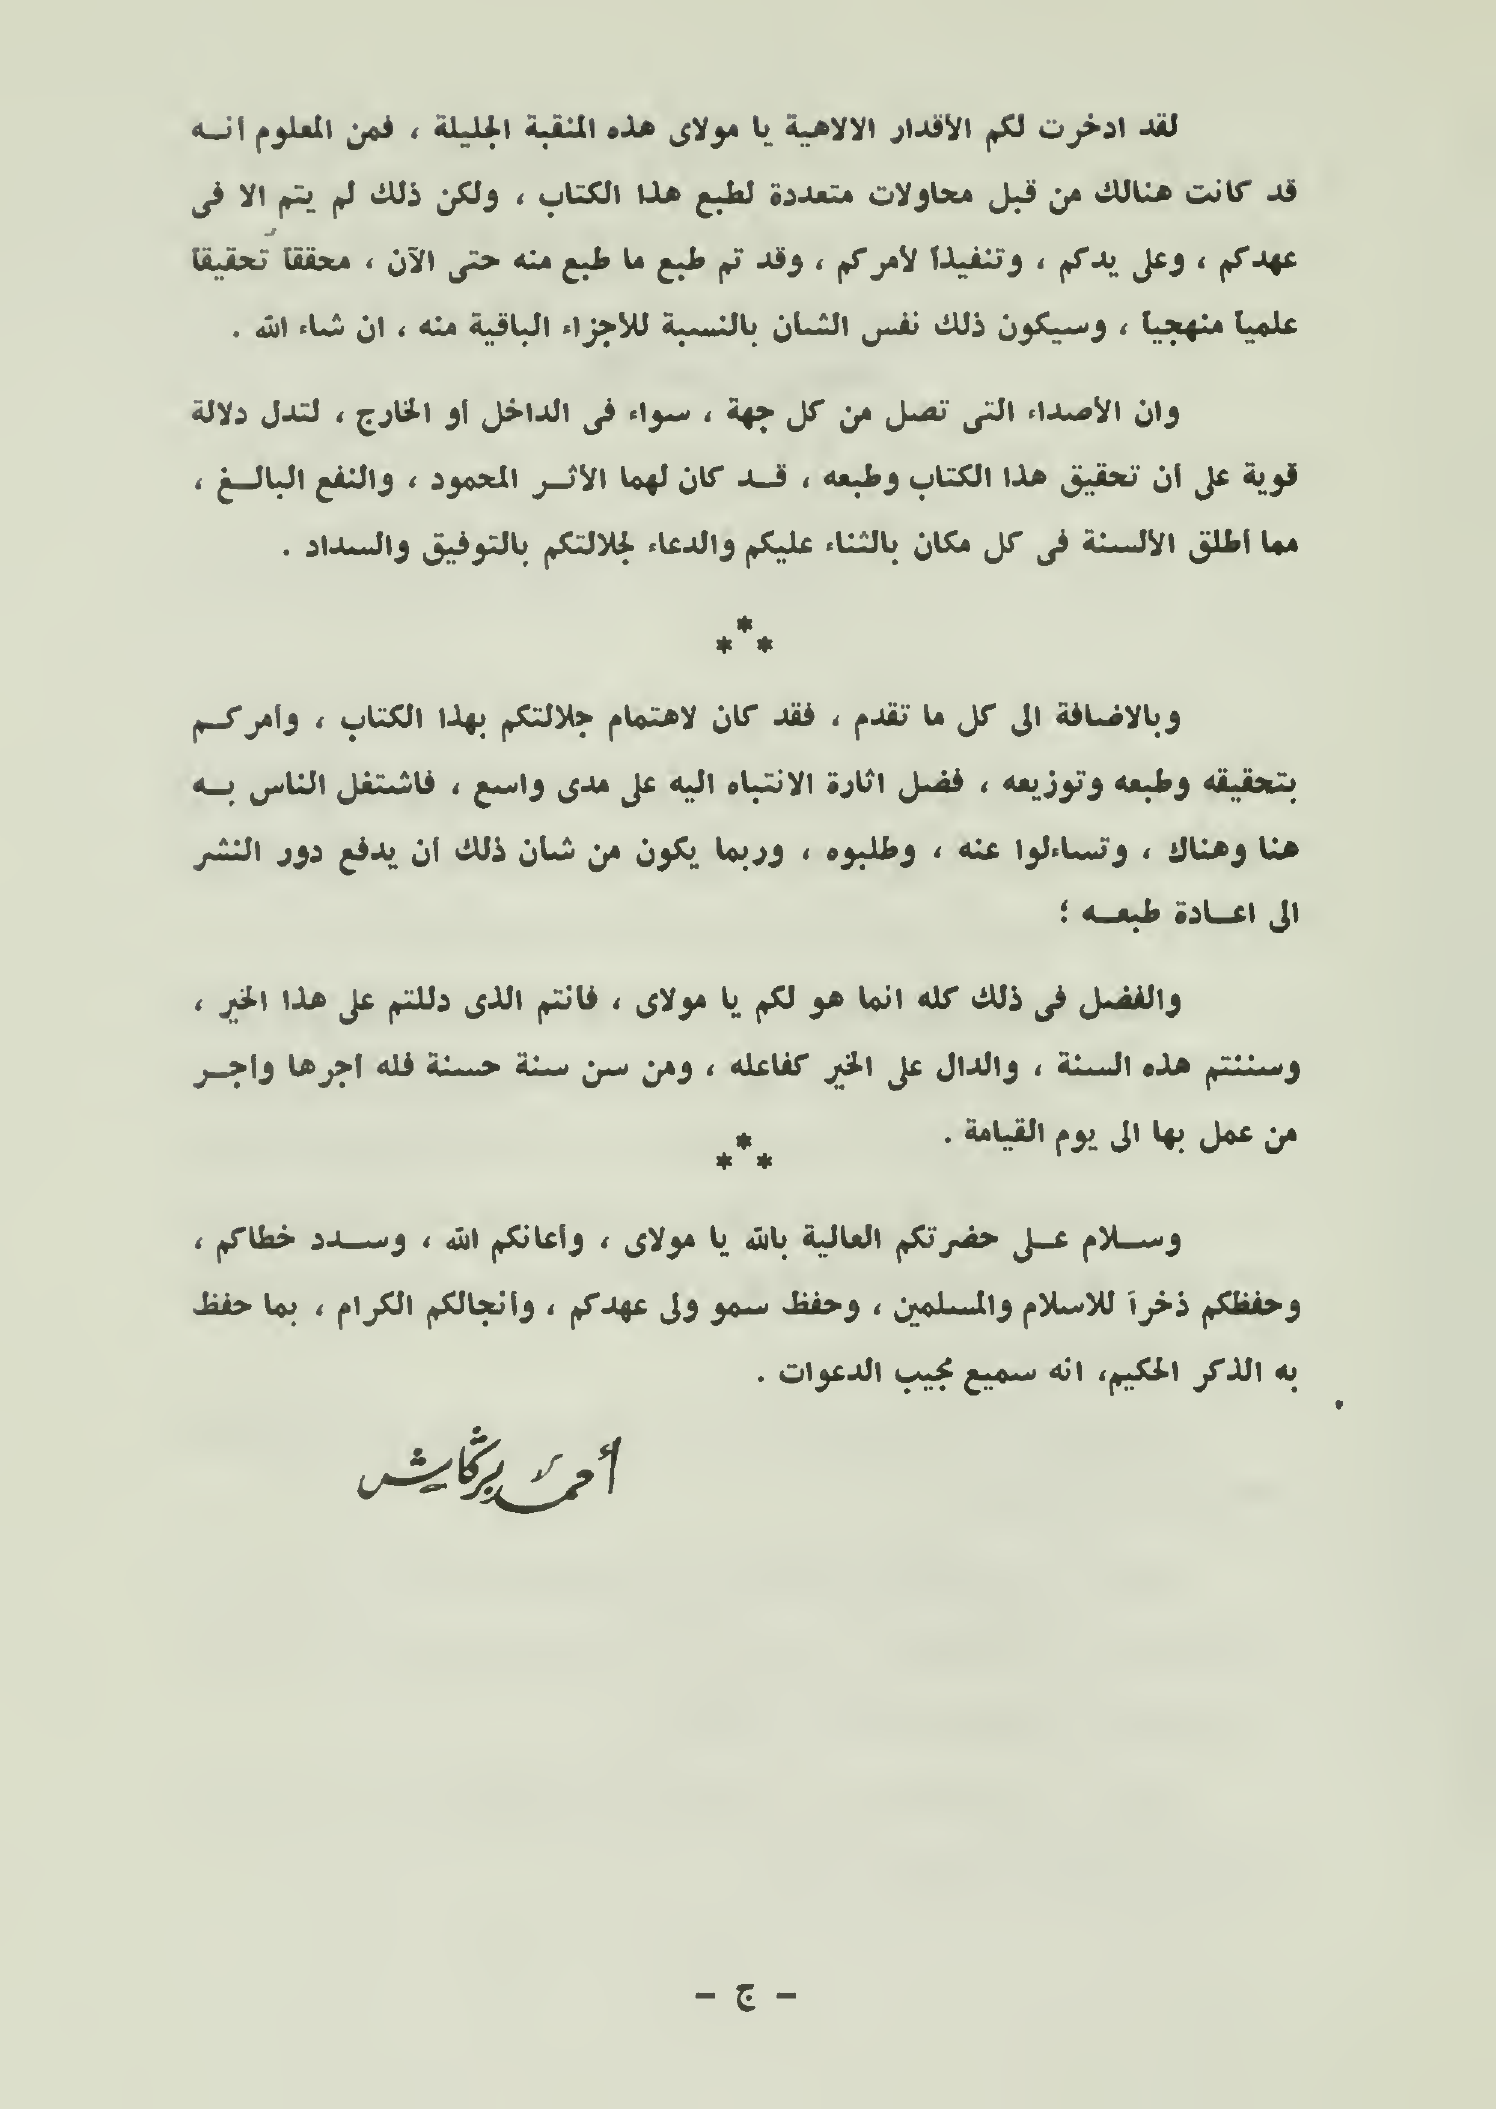 لقد ادخرت لكم الأقدار الالاهية يا مولاى هذه المنقبة الجليلة ، فمن المعلوم أنــه
قد كانت هنالك من قبل محاولات متعددة لطبع هذا الكتاب ، ولكن ذلك لم يتم الا فى
عهدكم ، وعلى يدكم ، وتنفيذاً لأمركم ، وقد تم طبع ما طبع منه حتى الآن ، محققاً تحقيقاً
علمياً منهجياً ، وسيكون ذلك نفس الشأن بالنسبة للأجزاء الباقية منه ، ان شاء الله .
وان الأصداء التى تصل من كل جهة ، سواء فى الداخل أو الخارج ، لتدل دلالة
قوية على أن تحقيق هذا الكتاب وطبعه ، قــد كان لهما الأثــر المحمود ، والنفع البالــغ ،
مما أطلق الألسنة فى كل مكان بالثناء عليكم والدعاء لجلالتكم بالتوفيق والسداد .
* * *
وبالاضافة الى كل ما تقدم ، فقد كان لاهتمام جلالتكم بهذا الكتاب ، وأمركــم
بتحقيقه وطبعه وتوزيعه ، فضل اثارة الانتباه اليه على مدى واسع ، فاشتغل الناس بــه
هنا وهناك ، وتساءلوا عنه ، وطلبوه ، وربما يكون من شأن ذلك أن يدفع دور النشر
الى اعــادة طبعــه ؛
والفضل فى ذلك كله انما هو لكم يا مولاى ، فأنتم الذى دللتم على هذا الخير ،
وسننتم هذه السنة ، والدال على الخير كفاعله ، ومن سن سنة حسنة فله أجرها وأجــر
من عمل بها الى يوم القيامة .
* * *
وســلام عــلى حضرتكم العالية بالله يا مولاى ، وأعانكم الله ، وســدد خطاكم ،
وحفظكم ذخراً للاسلام والمسلمين ، وحفظ سمو ولى عهدكم ، وأنجالكم الكرام ، بما حفظ
به الذكر الحكيم، انه سميع مجيب الدعوات .
أحمد بركاش
– ج –